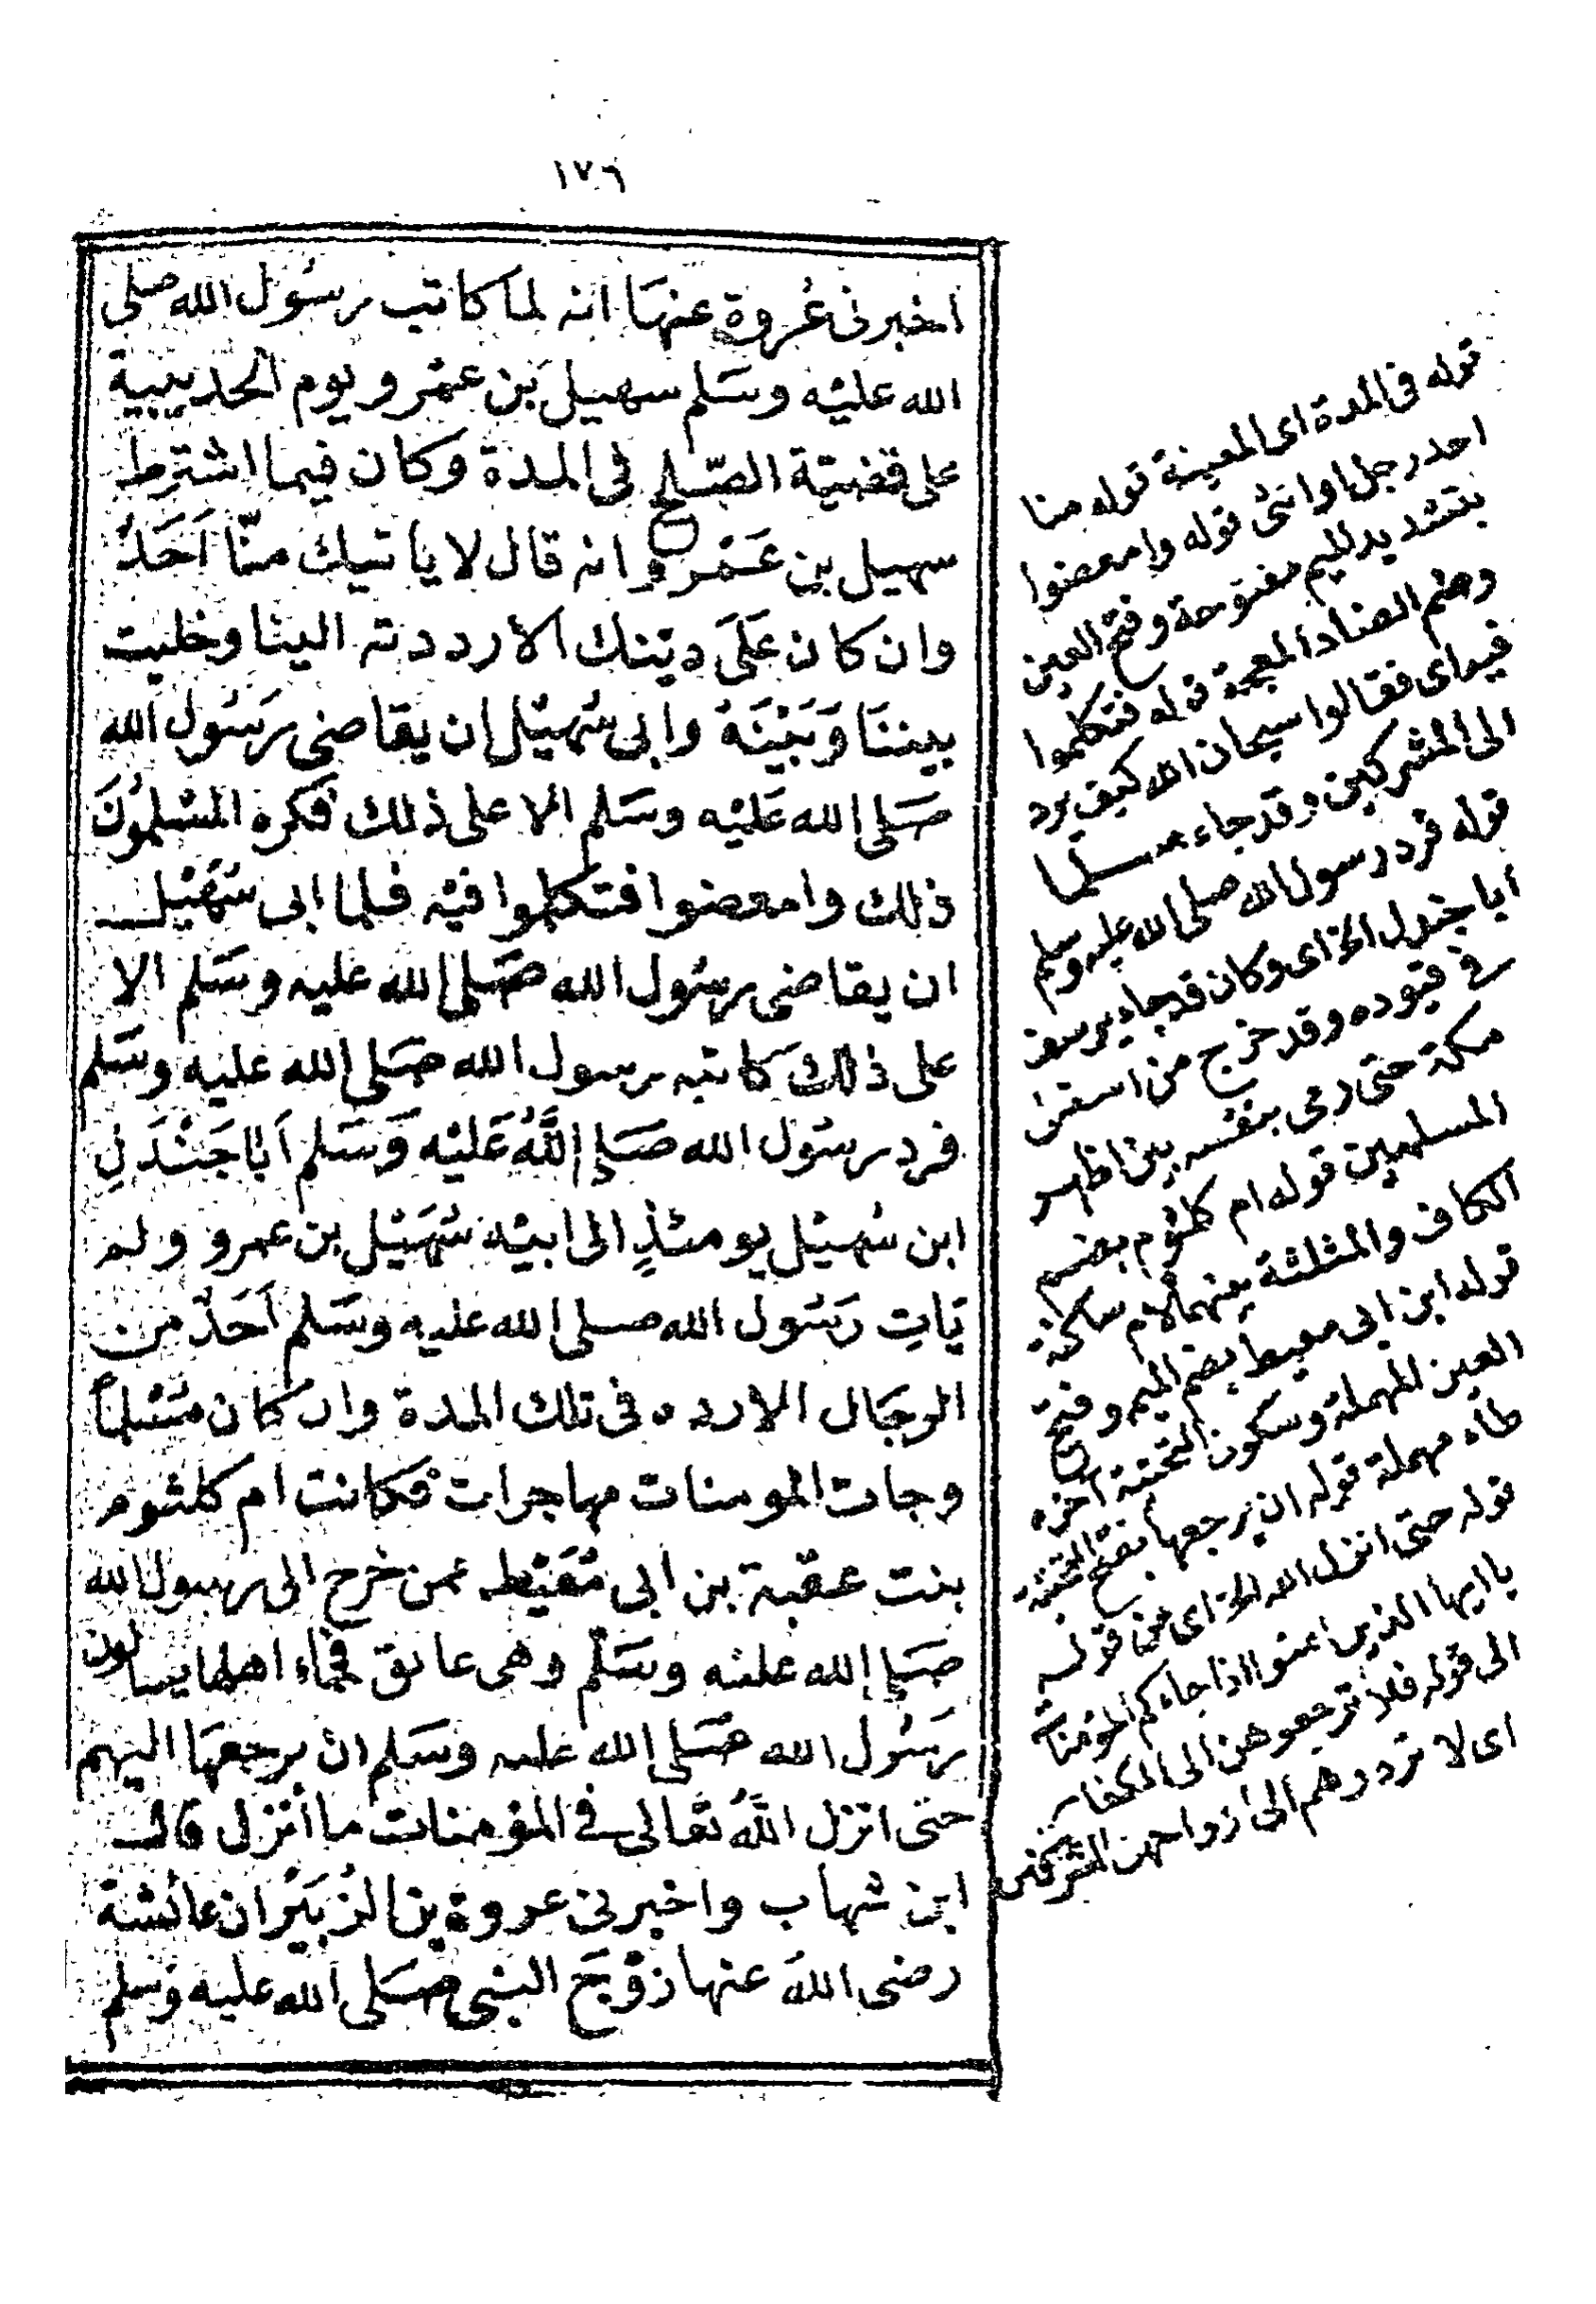 ١٧٦
اخبرنى عُروة عنهَا انه لما كاتب رسُول الله صلى
الله عليْه وسَلم سهيل بَن عمْرو يوم الحديبية
على قضيّة الصّلح فى المدة وكان فيما اشترط
سهيل بن عَمْرو انه قال لا ياتيك منّا اَحَدٌ
وان كان عَلَى ديْنك الا رددته الينا وخليت
بيننَا وَبَيْنَهُ وابى سُهيْل ان يقاضى رَسُول الله
صَلى الله عَليْه وسَلم الا على ذلك فكره المسْلمُونَ
ذلك وامعضوا فتكلموا فيْه فلما ابى سُهَيْل
ان يقاضى رسُول الله صَلى الله عليه وسَلم الا
على ذلك كاتبه رسول الله صَلى الله عليه وسَلم
فرد رسُول الله صَلى اللَّهُ عَليْه وَسَلم اَبَا جَنْدَلِ
ابن سُهيْل يومئذٍ الى ابيْه سُهَيْل بن عمرو ولم
يَاتِ رَسُول الله صلى الله عليه وسَلم اَحَدٌ من
الرجَال الا رده فى تلك المدة وان كان مسْلماً
وجات المومنات مهاجرات فكانت ام كلثوم
بنت عقبة بن ابى مُعَيْط ممن خرج الى رسول الله
صَلى الله عليه وسَلّم وهى عاتق فجاء اهلها يسالون
رَسُول الله صَلى الله عليه وسَلم ان يرجعهَا اليهم
حتى انزل اللَّهُ تعَالى فى المؤمنات ما اَنزل قال
ابن شهاب واخبرنى عروة بن الزبَيْر ان عائشة
رضى اللهَ عنها زوْجَ النبى صَلى الله عليه وَسلم
قوله فى المدة اى المعينة قوله منا
احد رجل او انثى قوله وامعضوا
بتشديد الميم مفتوحة وفتح العين
وضم الضاد المعجمة قوله فتكلموا
فيه اى فقالوا سبحان الله كيف يرد
الى المشركين وقد جاء مسلما
قوله فرد رسول الله صلى الله عليه وسلم
ابا جندل الخ اى وكان قد جاء يرسف
فى قيوده وقد خرج من اسفل
مكة حتى رمى بنفسه بين اظهر
المسلمين قوله ام كلثوم بضم
الكاف والمثلثة بينهما لام ساكنة
قوله ابن ابى معيط بضم الميم وفتح
العين المهملة وسكون التحتية اخره
طاء مهملة قوله ان يرجعها بفتح التحتية
قوله حتى انزل الله الخ اى من قوله
يا ايها الذين امنوا اذا جاءكم المؤمنات
الى قوله فلا ترجعوهن الى الكفار
اى لا تردوهم الى ازواجهن المشركين